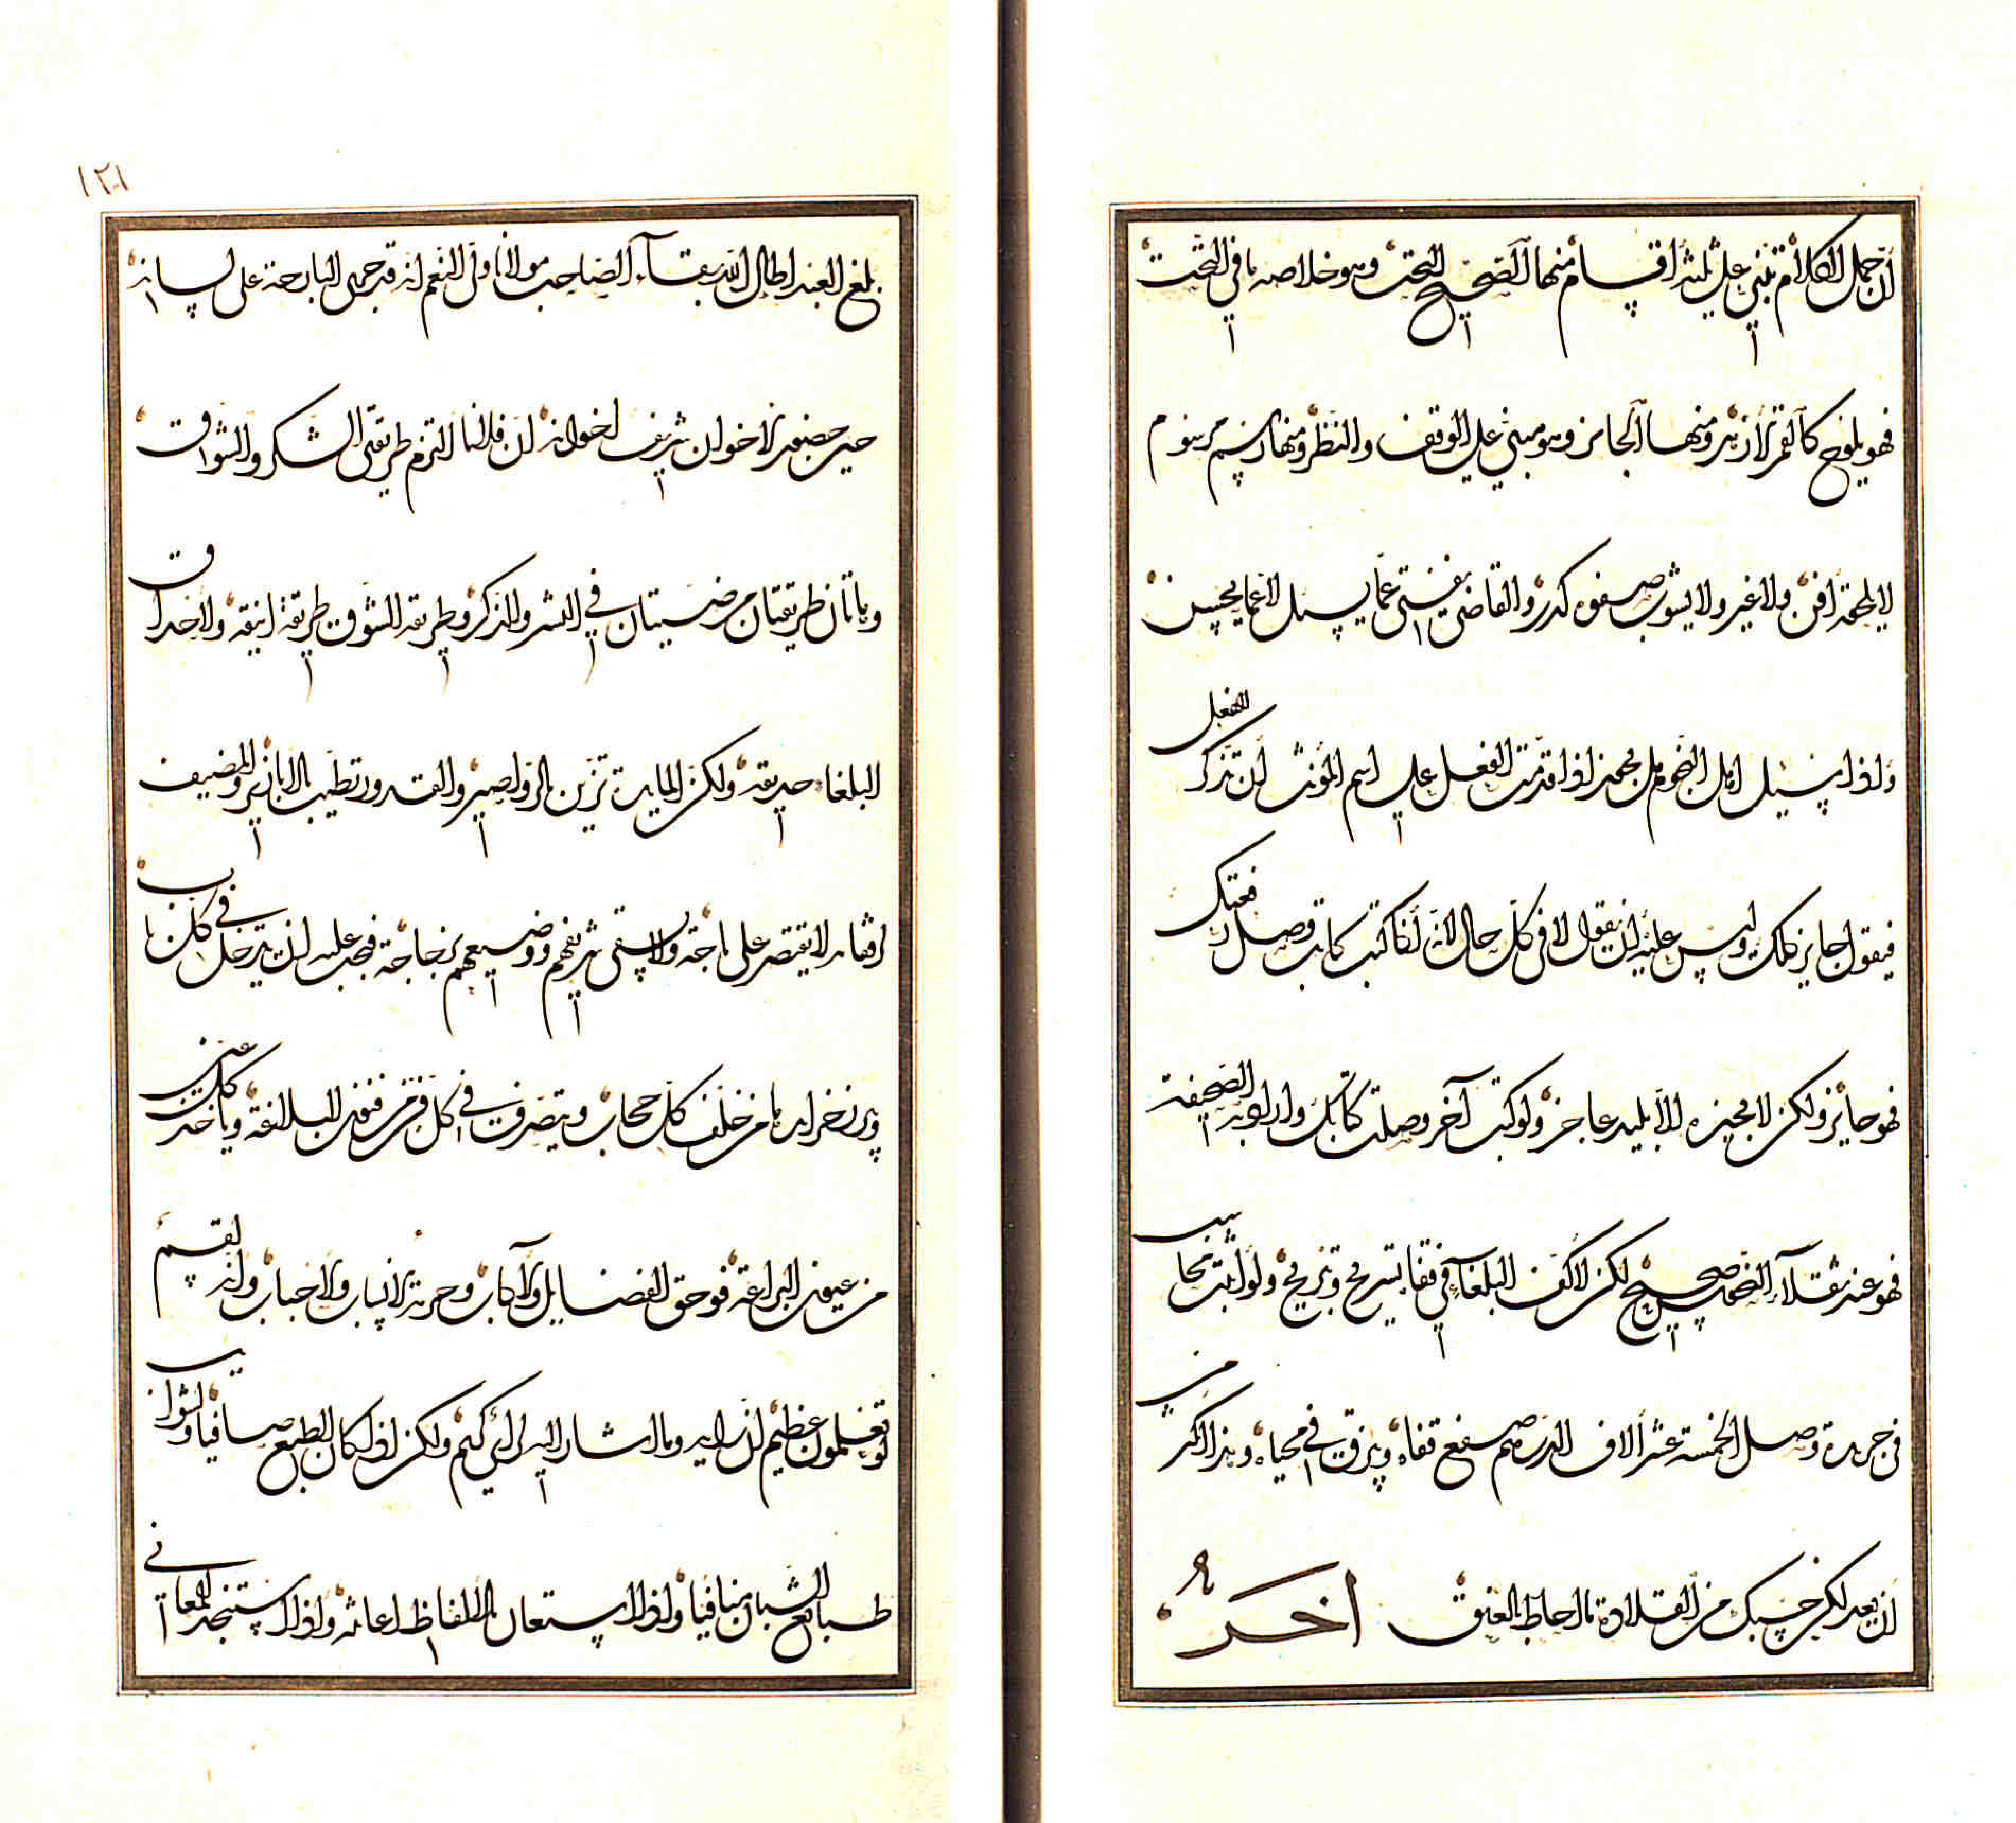 أن جمل الكلام تبنى على ثلثة أقسام منها الصحيح البحت وهو خلاصة ما في التخت
فهو يلوح كالقمر الأزهر ومنها الجائز وهو مبني على الوقف والنظر ومنها رسم مرسوم
لا يلحقه أفن ولا غير ولا يشوب صفوه كدر والقاضي يفتي عما يسئل لا عما يحسن
وإذا سئل أهل النحو هل يجوز إذا قدمت الفعل على اسم المؤنث أن تذكر الفعل
فيقول جايز ذلك وليس عليه أن يقول لا في كل حال لأنه لو كتب كاتب وصل رقعتك
فهو جائز ولكن لا يجيزه إلا بليد عاجز ولو كتب آخر وصلت كتابك وأراد به الصحيفة
فهو عند ثقلاء النحو صحيح لكن لأكف البلغاء في قفاه تسريح وتزييح ولو أثبت محاسب
في جريدة وصل الخمسة عشر ألاف الدرهم صفع قفاه وبزق في محياه وهذا أكثر من
أن يعد لكن حسبك من القلادة ما أحاط بالعنق آخر
١٢١
بلغ العبد أطال الله بقاء الصاحب مولانا ولي النعم أنه قد جرى البارحة على لسانه
حين حضور الإخوان شريف إخوانه أن فلانا التزم طريقي الشكر والشوق
وهاتان طريقتان مرضيتان في النشر والذكر وطريقة الشوق طريقة أنيقة ولأحداق
البلغاء حديقة ولكن المايدة تزين بالرواصير والقدور تطيب بالأبازير والمضيف
لا يقتصر على باجة ولا يسقي شريفهم ووضيعهم بزجاجة فيجب عليه أن يدخل في كل باب
من خلف كل حجاب ويتصرف في كل فن من فنون البلاغة ويأخذ كل عين
من عيون البراعة فوحق الفضايل والآداب وحرمة الأنساب والأحباب وإنه لقسم
لو تعلمون عظيم لم ولكن إذا كان الطبع صافيا والشوايب
طبايع الشبان منافيا وإذا استعان بالألفاظ أعانته وإذا استنجد المعاني